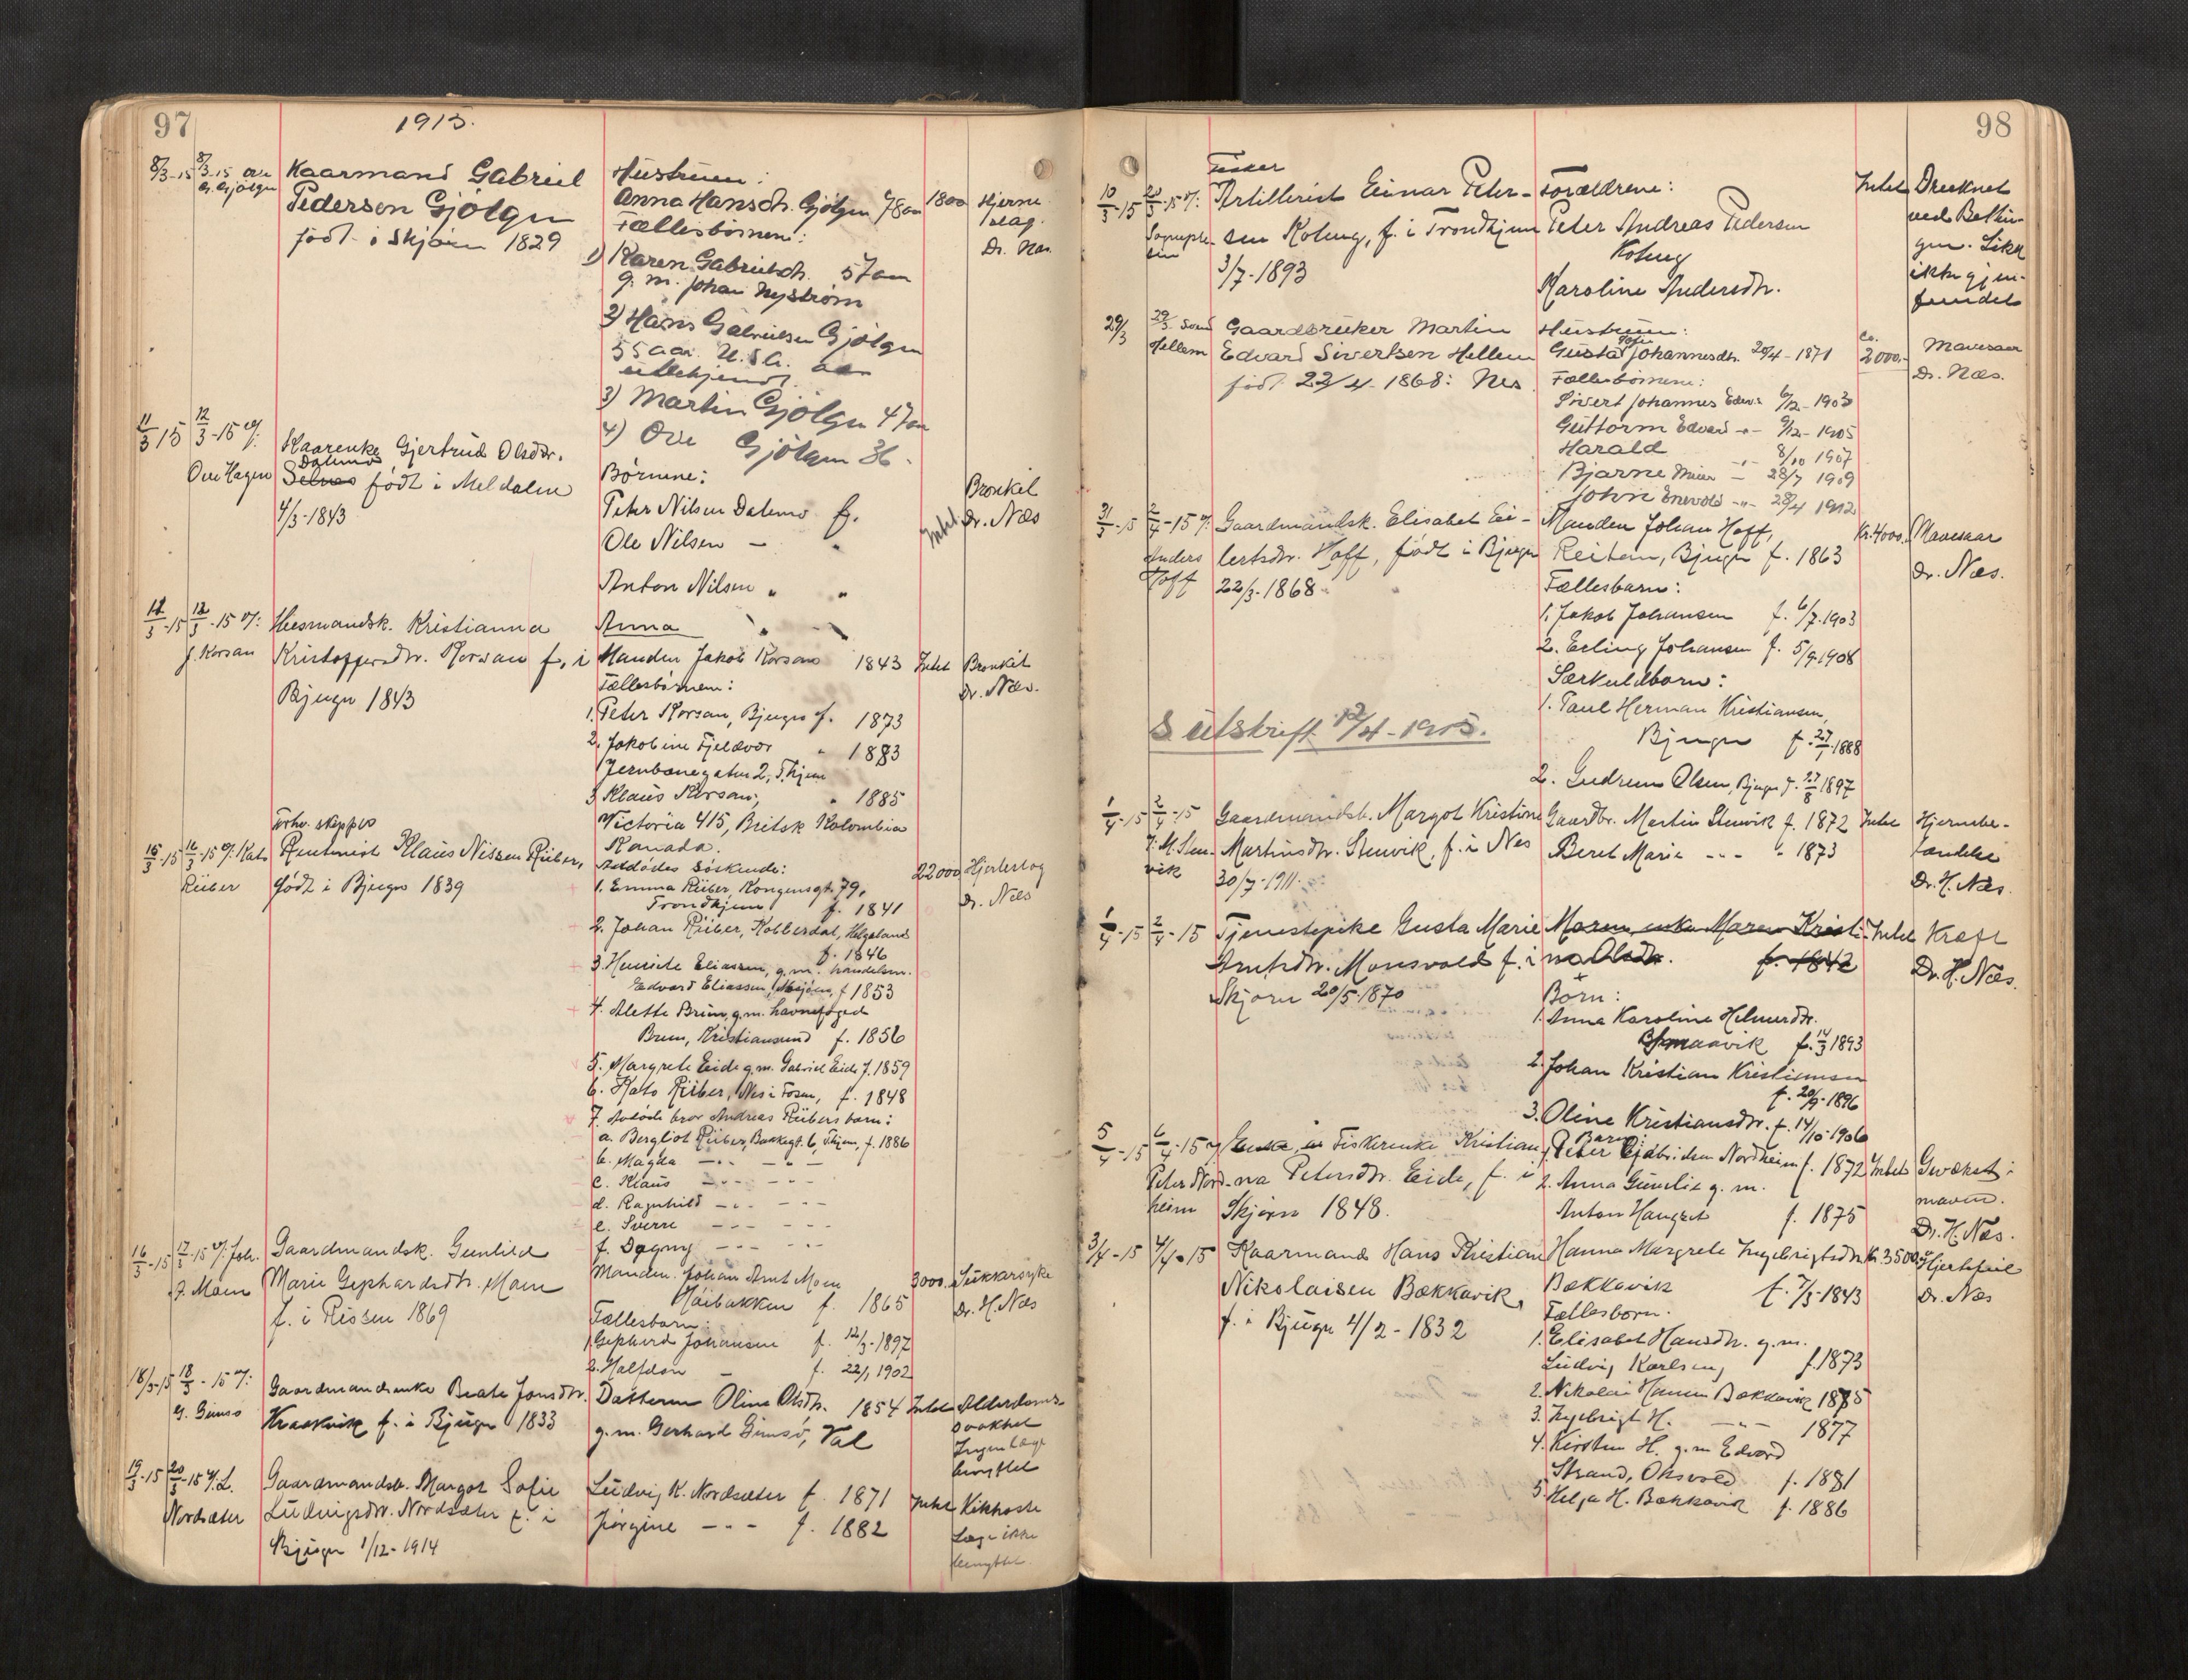 97
1915.
8/3-15 8/3-15 Ove G. Gjölgen
Kaarmand Gabriel
Pedersen Gjölgen
född i Skjörn 1829
Hustruen:
Anna Hansdr. Gjölgen 78 aar
Fællesbörnene:
1) Karen Gabrielsdr. 57 aar
g. m. Johan Nyström
2) Hans Gabrielsen Gjölgen
55 aar. U.S.A.
3) Martin Gjölgen 47 aar
4) Ove Gjölgen 36 -
1800
Hjerne
slag.
Dr. Næs.
11/3 15 12/3-15 v/:
Ove Hagen
Kaarenke Gjertrud Olsdr.
Dalemo
Selnes född i Meldalen
4/3-1843
Börnene:
Peter Nilsen Dalemo f.
Ole Nilsen - "
Anton Nilsen " "
Anna " "
Intet.
Bronkit
Dr. Næs
12/3-15 v/:
J. Korsan
Husmandsk. Kristianna
Kristoffersdr. Korsan f. i
Bjugn 1843
Manden Jakob Korsan 1843
Fællesbörnene:
1. Peter Korsan, Bjugn f. 1873
2. Jakobine Fjeldvær " 1883
Jernbanegaten 2, T.hjem
3 Klaus Korsan, " 1885
Victoria 415, Britsk Kolombia
Kanada.
Intet
Bronkit
Dr. Næs.
15/3-15 16/3-15 v/: Kato
Rüber
forhv. skipper
Rentenist Klaus Nissen Rüber,
född i Bjugn 1839
Avdödes söskende:
1. Emma Rüber, Kongensgt. 79,
Trondhjem f. 1841
2. Johan Rüber, Kobberdal, Helgeland
f. 1846
3. Henriete Eliassen, g.m. handelsm.
Edvard Eliassen, Skjörn, f 1853
4. Alette Brun, g.m. havnefoged
Brun, Kristiansund f. 1856
5. Margrete Eide g.m. Gabriel Eide f. 1859
6. Kato Rüber, Nes i Fosen, f. 1848
7. Avdöde bror Andreas Rübers barn:
a. Bergliot Rüber, Bakkegt. 6, T.hjem, f. 1886
b. Magda - " - - " -
c. Klaus - " - - " -
d. Ragnhild - " - - " -
e. Sverre - " - - " -
f. Dagny - " - - " -
22000
Hjerteslag
Dr. Næs
16/3-15 17/3-15 v/: Joh.
A. Moen
Gaardmandsk. Gunhild
Marie Gephardsdtr. Moen
f. i Rissen 1869
Manden: Johan Arnt Moen
Höibakken f. 1865
Fællesbarn:
1. Gephard Johansen f. 12/3-1897
2. Halfdan - f. 22/1 1902
3000.
Sukkersyke
Dr. H. Næs
18/3-15 18/3-15 v/:
G. Gimsö
Gaardmandsenke Beate Jonsdtr.
Kraakvik f. i Bjugn 1833
Datteren Oline Olsdtr. 1854
g.m. Gerhard Gimsö, Val
Intet
Alderdoms-
svakhet
Ingen læge
benyttet
19/3-15 20/3-15 v/: L.
Nordsæter
Gaardmandsb. Margot Sofie
Ludvigsdtr. Nordsæter f. i
Bjugn 1/12-1914
Ludvig K. Nordsæter f. 1871
Jörgine - " - f. 1882
Intet
Kikhoste
Læge ikke
benyttet
98
10/3-15 20/3-15 v/:
Fisker
Artillerist Einar Peter-
sen Koteng, f. i Trondhjem
3/7-1893
Forældrene:
Peter Andreas Pedersen
Koteng
Karoline Andersdtr.
Intet
Druknet
ved Bettin-
gen. Liket
ikke gjen-
fundet
29/3 29/3 Sivert
Hellem
Gaardbruker Martin
Edvard Sivertsen Hellem
född 22/4-1868: Nes
Hustruen:
Gusta Johannesdtr. 20/4-1871
Fællesbörnene:
Sivert Johannes Edvs. 6/12-1903
Guttorm Edvard -"- 9/12-1905
Harald -"- 8/10 1907
Bjarne -"- 28/7 1909
John -"- 28/4 1912
Ca.
2000.-
Mavesaar
Dr. Næs.
31/3-15 2/4-15 v/:
Anders
Hoff
Gaardmandsk. Elisabet Ei-
lertsdtr. Hoff, född i Bjugn
22/3-1868
Manden Johan Hoff,
Reiten, Bjugn f. 1863
Fællesbarn:
1. Jakob Johansen f. 6/7-1903
2. Erling Johansen f. 5/9-1908
Særkuldbarn:
1. Paul Herman Kristiansen,
Bjugn f. 27/7 1888
2. Gudrun Olsen, Bjugn f. 27/8 1897
Kr. 4000.
Mavesaar
Dr. Næs.
S utskrift 12/4-1915.
1/4-15 2/4-15
v/: M. Sten-
vik
Gaardmandsb. Margot Kristine
Martinsdtr. Stenvik, f. i Nes
30/7-1911.
Gaardbr. Martin Stenvik f. 1872
Beret Marie - " - " 1873
Intet
Hjernebe-
tændelse
Dr. H. Næs.
1/4-15 2/4-15
Tjenestepike Gusta Marie
Arntsdtr. Monsvold f. i
Skjörn 20/5-1870
Moren, enke Maren Kristi-
na Olsdtr. f. 1842
Börn:
1. Anna Karoline Helmersdtr.
f. 14/3 1893
2. Johan Kristian Kristiansen
f. 20/9-1896
3. Oline Kristiansdtr. f. 14/10-1906
Intet
Kræft
Dr. H. Næs.
5/4-15 6/4-15 v/
Peter Nord-
heim
Fiskerenke Kristian-
na Petersdtr. Eide, f. i
Skjörn 1848.
Barn:
1. Peter Gjabrielsen Nordheim f. 1872
2. Anna Gunelie g. m.
Anton Hauget f. 1875
Intet
Svækst i
maven.
Dr. H. Næs.
3/4-15 4/4-15
Kaarmand Hans Kristian
Nikolaisen Bækkavik,
f. i Bjugn 4/2-1832
Hanna Margrete Ingebrigtsdtr.
Bækkavik f. 7/5-1843
Fællesborn.
1. Elisabet Hansdtr. g.m.
Ludvig Karlsen, f. 1873
2. Nikolai Hansen Bækkavik 1875
3. Ingebrigt H. -"- 1877
4. Kirsten H. g.m Edvard
Strand, Oksvold f. 1881
5. Helga H. Bækkavik f. 1886
kr. 3500
Hjertefeil
Dr. Næs